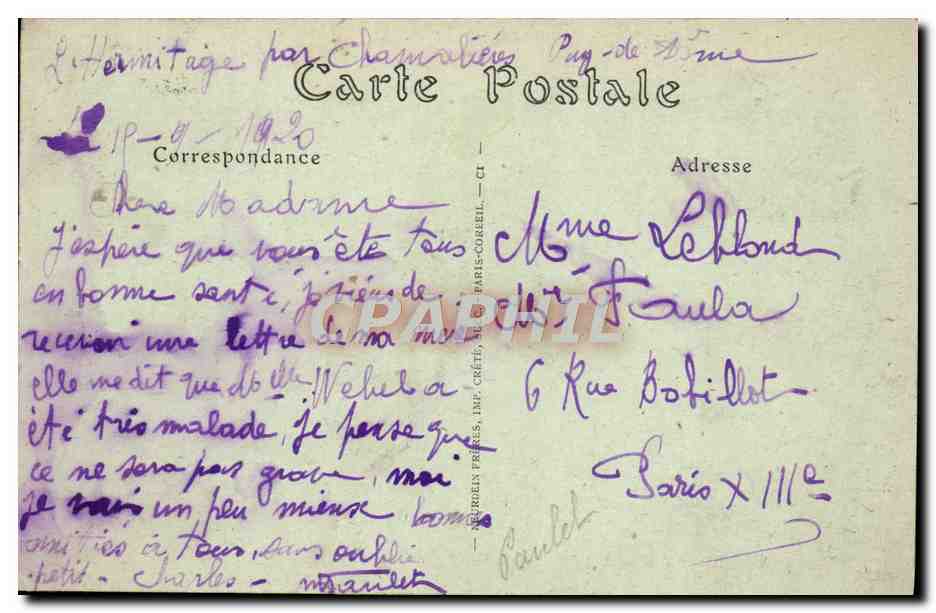 L'Hermitage par Chamalières Puy-de Dôme
Carte Postale
15-9-1920
Correspondance
Adresse
Chere Madame
J'espère que vous ête tous
en bonne santé, je viens de
recevoir une lettre de ma mere
elle me dit que Melle
été très malade, je pense que
ce ne sera pas grave, moi
je vais un peu mieux bonnes
amitiés à tous, sans oublié
petit - Charles -
Mme Leblond
6 Rue Bobillot
Paris XIIIe
Paulet
NEURDEIN FRÈRES, IMP. CRÉTÉ, SUCC. PARIS-CORBEIL. — CI —
CPAPHIL